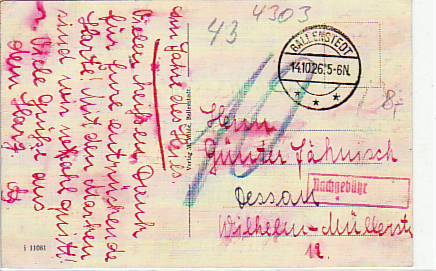 43
4303
BALLENSTEDT
14.10.26.5-6N.
8,-
am Fuße des Harz.
Vielen herzlichen Dank
für Eure entzückende
Karte. Mit den Marken
sind wir
Viele Grüße aus
dem Harz
Verlag M. Ballenstedt.
Herrn
Günter Jähnisch
Dessau
Nachgebühr
Wilhelm-Müllerstr
12.
i 11081